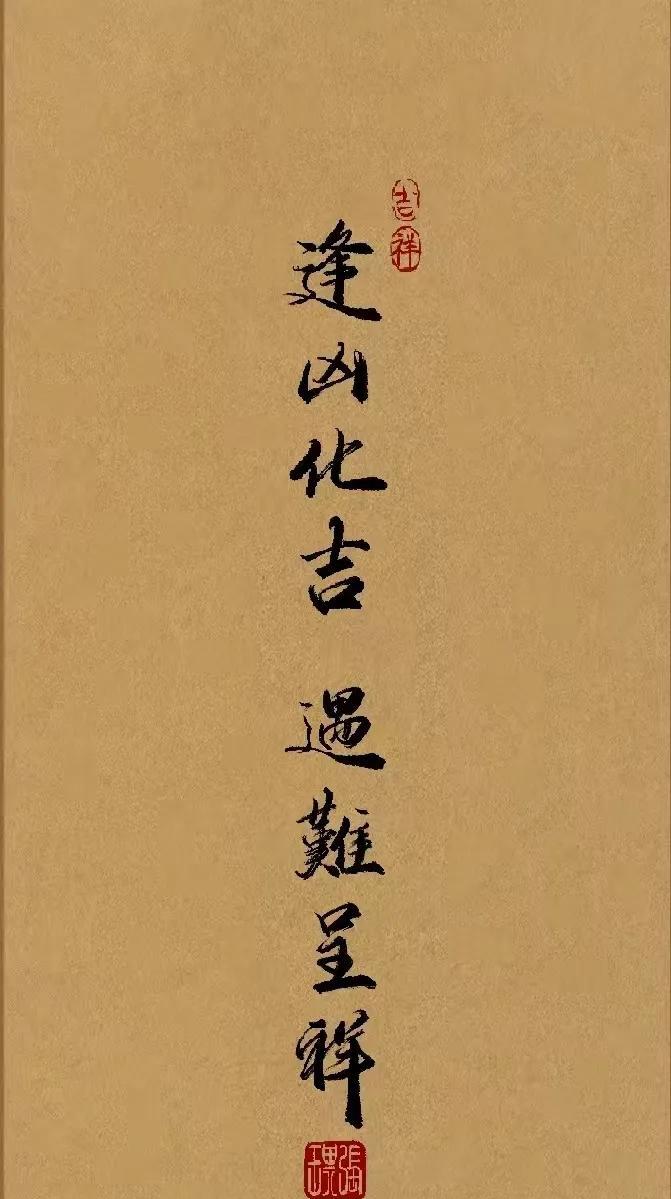 吉祥
逢凶化吉 遇難呈祥